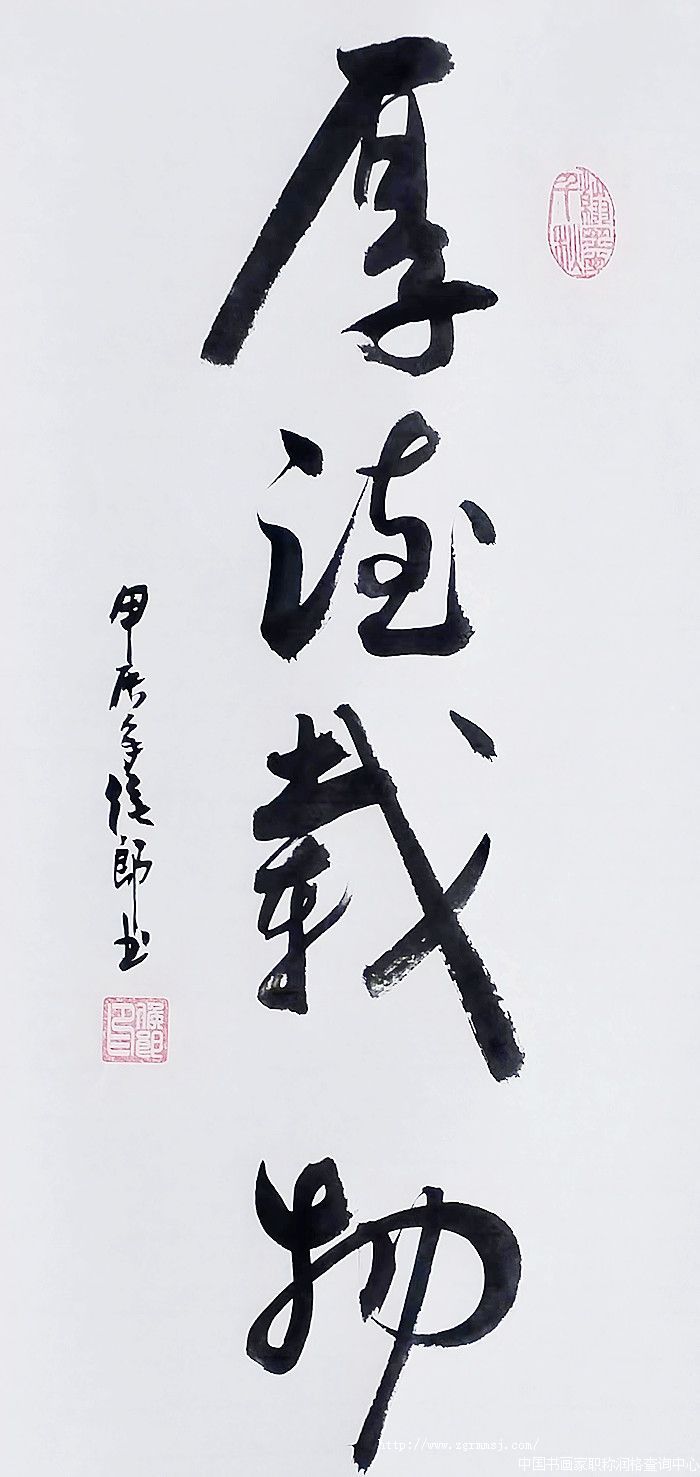 厚德载物
甲辰年侯郎书
http://www.zgrmmsj.com/
中国书画家职称润格查询中心